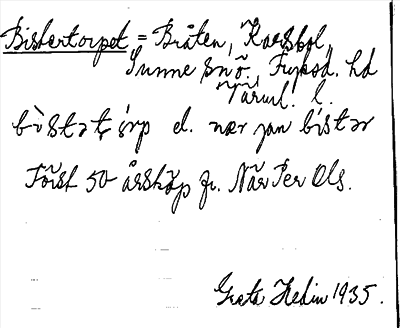 Biskertorpet = Bråten, Karsbol,
Sunne snö., Fryksd. hd
Värml. l.
bìstətsrp el. nær jan bistər
Först 50 årsköp fr. När Per Ols.
Greta Hedin 1935.